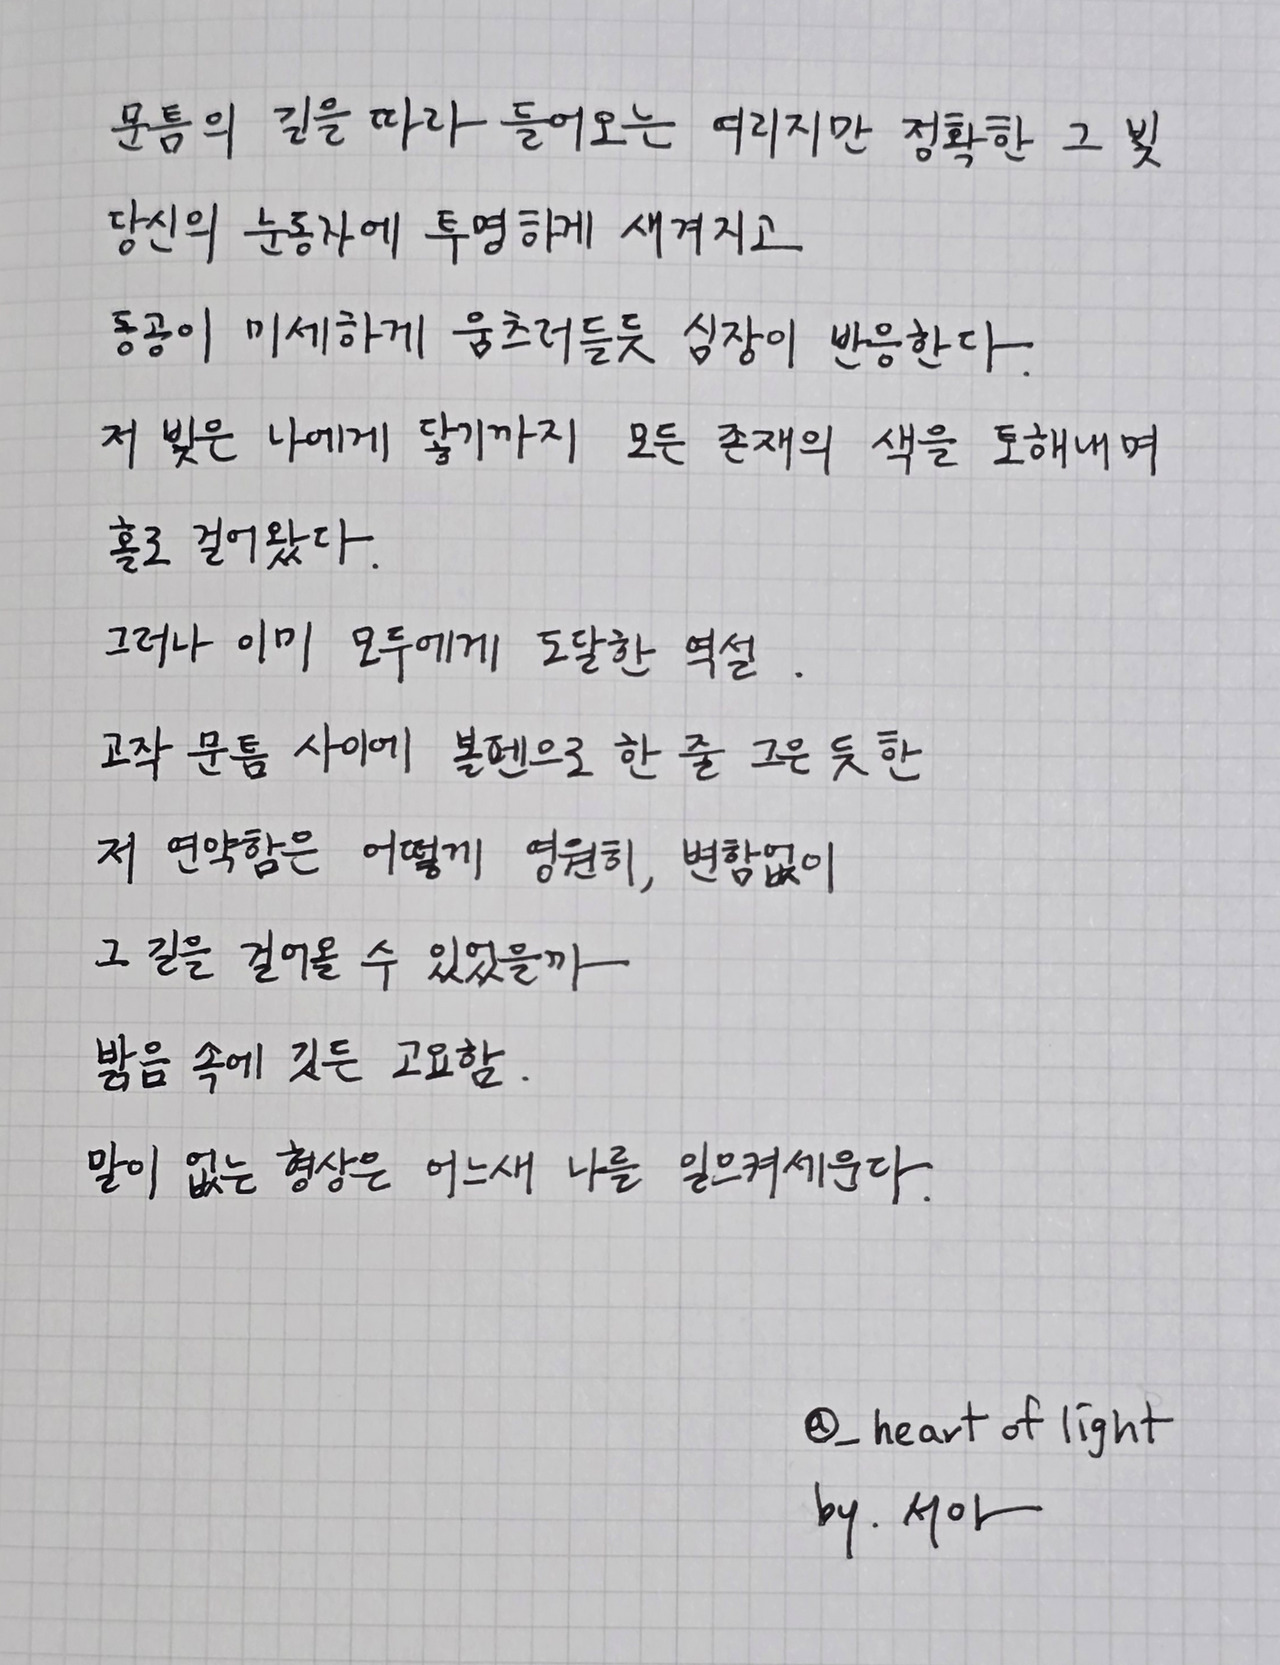 문틈의 길을 따라 들어오는 여리지만 정확한 그 빛
당신의 눈동자에 투명하게 새겨지고
동공이 미세하게 움츠러들듯 심장이 반응한다.
저 빛은 나에게 닿기까지 모든 존재의 색을 토해내며
홀로 걸어왔다.
그러나 이미 모두에게 도달한 역설.
고작 문틈 사이에 볼펜으로 한 줄 그은 듯 한
저 연약함은 어떻게 영원히, 변함없이
그 길을 걸어올 수 있었을까
밝음 속에 깃든 고요함.
말이 없는 형상은 어느새 나를 일으켜세운다.
@_heart of light
by. 서아